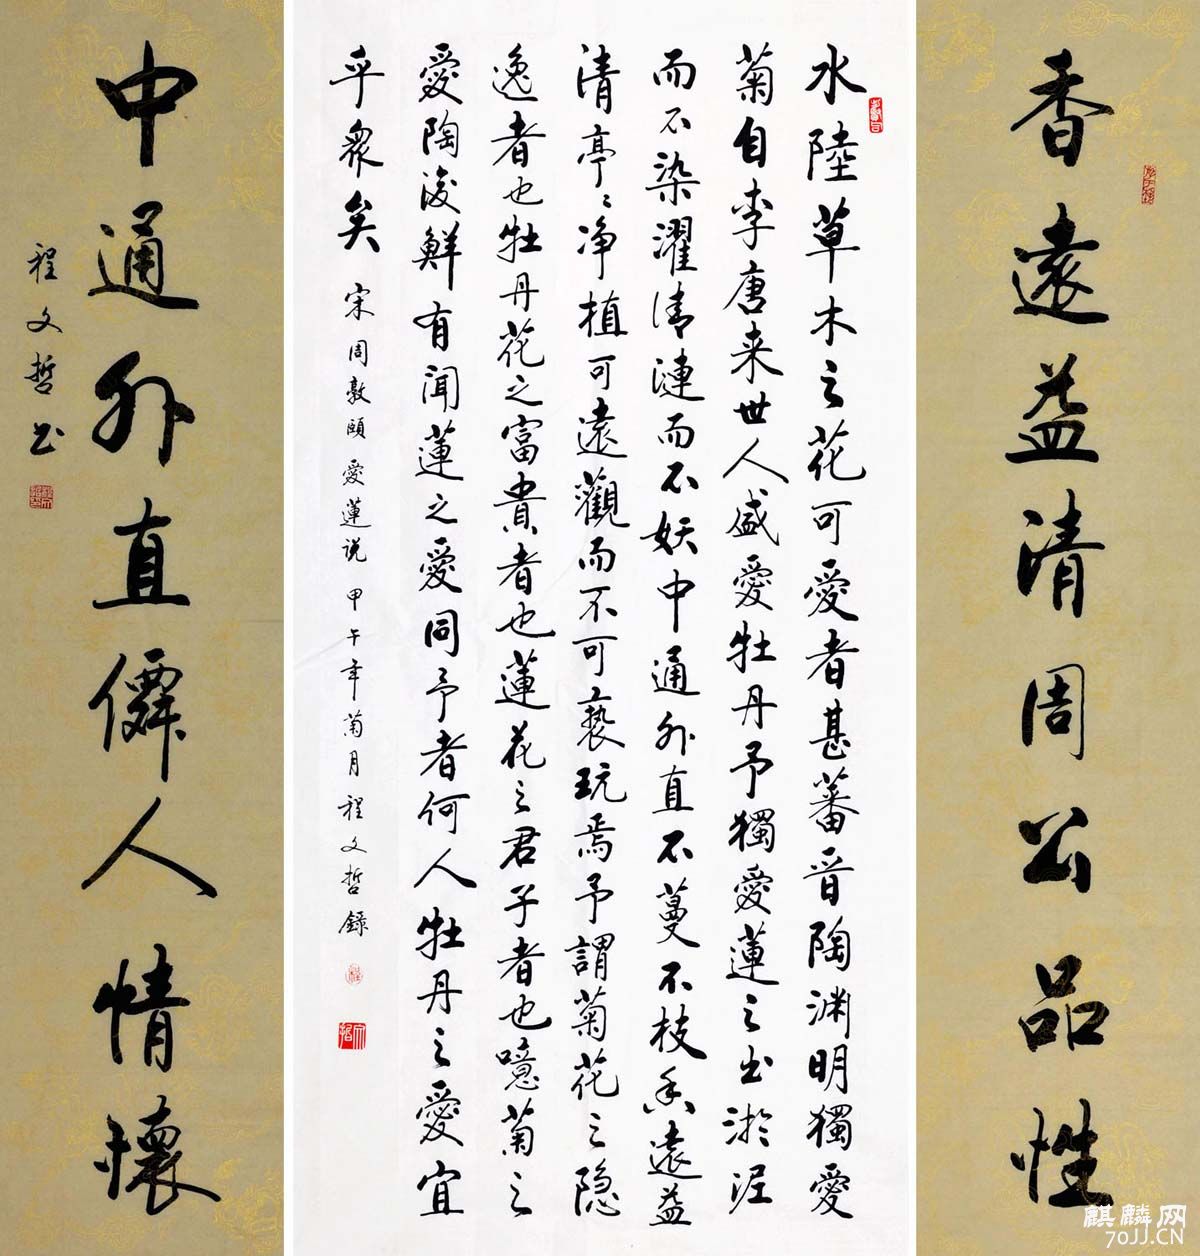 香遠益清周公品性
水陸草木之花可愛者甚蕃晉陶渊明獨愛
菊自李唐来世人盛愛牡丹予獨愛蓮之出淤泥
而不染濯清漣而不妖中通外直不蔓不枝香遠益
清亭〻净植可遠觀而不可亵玩焉予謂菊花之隐
逸者也牡丹花之富貴者也蓮花之君子者也噫菊之
愛陶後鮮有闻蓮之愛同予者何人牡丹之愛宜
乎衆矣 宋周敦頤愛蓮说 甲午年菊月程文哲錄
中通外直人情懷
程文哲书
麒麟网
70JJ.CN